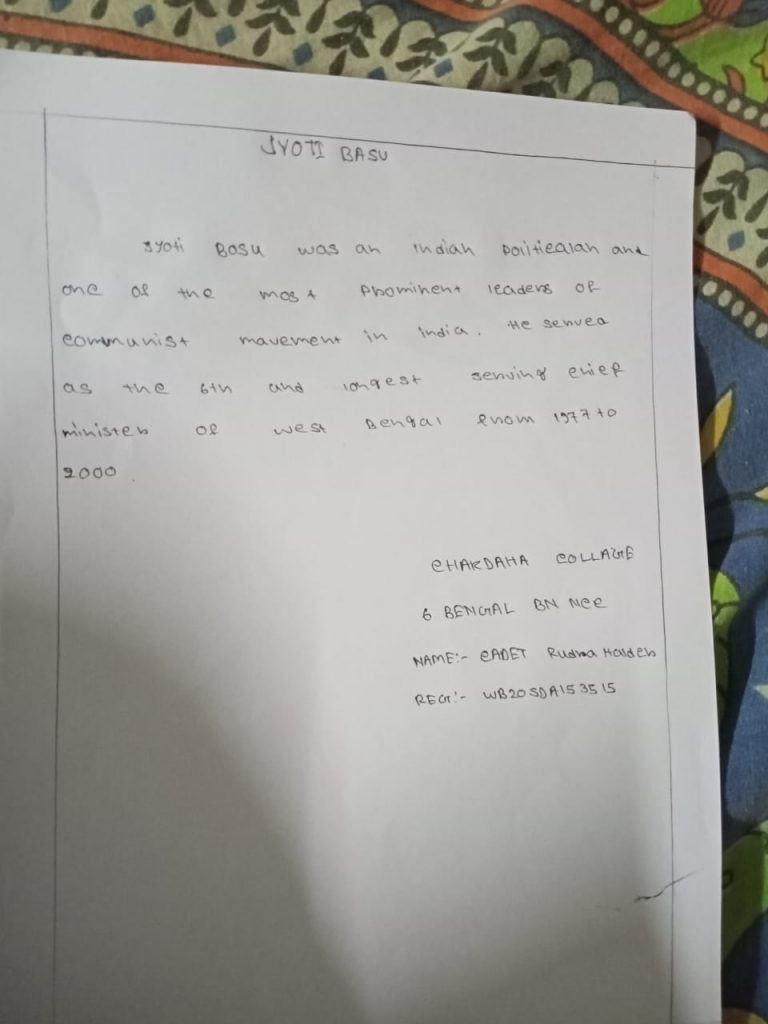 JYOTI BASU
Jyoti Bosu was an indian politiealan and
one of the most prominent leaders of
communist mavement in india. He served
as the 6th and longest serving chief
minister of west Bengal from 1977 to
2000.
CHAKDAHA COLLAGE
6 BENGAL BN NCC
NAME:- CADET Rudra Halder
REGT:- WB20SDA153515